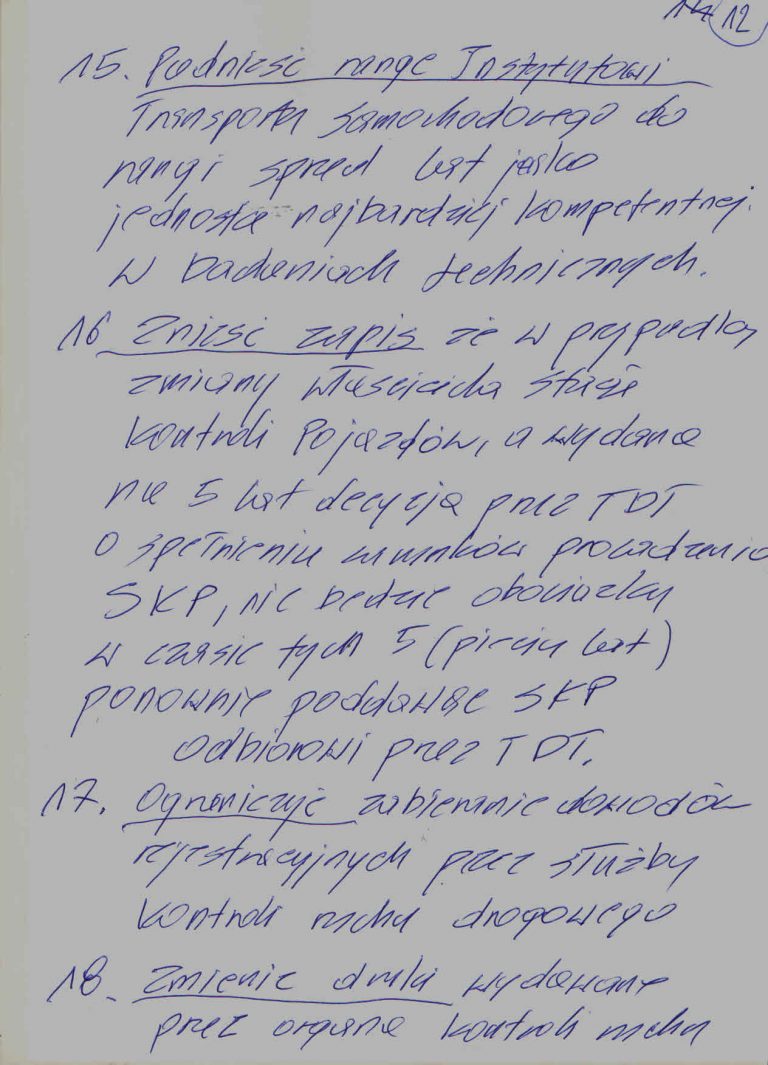 12
15. Podnieść rangę Instytutowi
Transportu Samochodowego do
rangi sprzed lat jako
jednostce najbardziej kompetentnej
w badaniach technicznych.
16 Znieść zapis że w przypadku
zmiany właściciela stacji
Kontroli Pojazdów, a wydana
na 5 lat decyzja przez TDT
o spełnieniu warunków prowadzenia
SKP, nie będzie obowiązku
w czasie tych 5 (pięciu lat)
ponownie poddawać SKP
odbiorowi przez TDT.
17. Ograniczyć zabieranie dowodów
rejestracyjnych przez służby
kontroli ruchu drogowego
18. Zmienić druki wydawane
przez organa kontroli ruchu